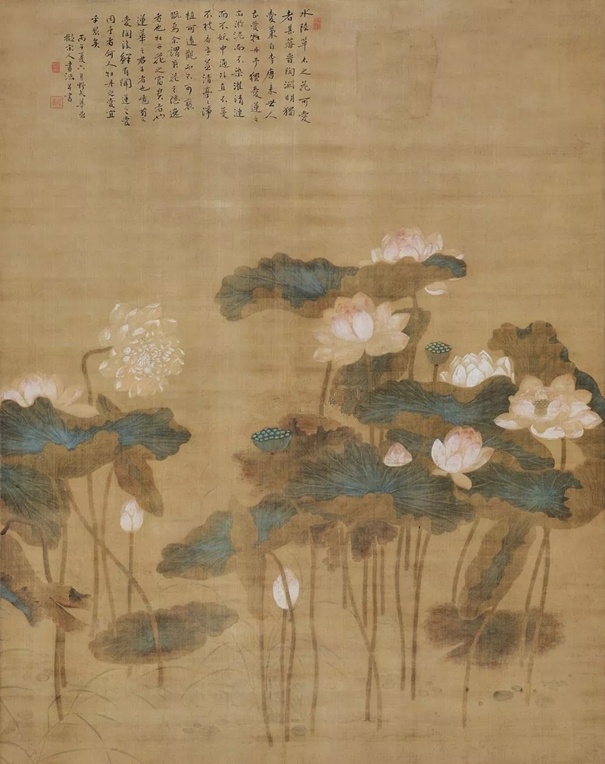 水陸草木之花可愛
者甚蕃晉陶淵明獨
愛菊自李唐來世人
甚愛牡丹予獨愛蓮之
出淤泥而不染濯清漣
而不妖中通外直不蔓
不枝香遠益清亭亭淨
植可遠觀而不可褻
翫焉余謂菊花之隱逸
者也牡丹花之富貴者也
蓮花之君子者也噫菊之
愛陶後鮮有聞蓮之愛
同予者何人牡丹之愛宜
乎眾矣
夏六月